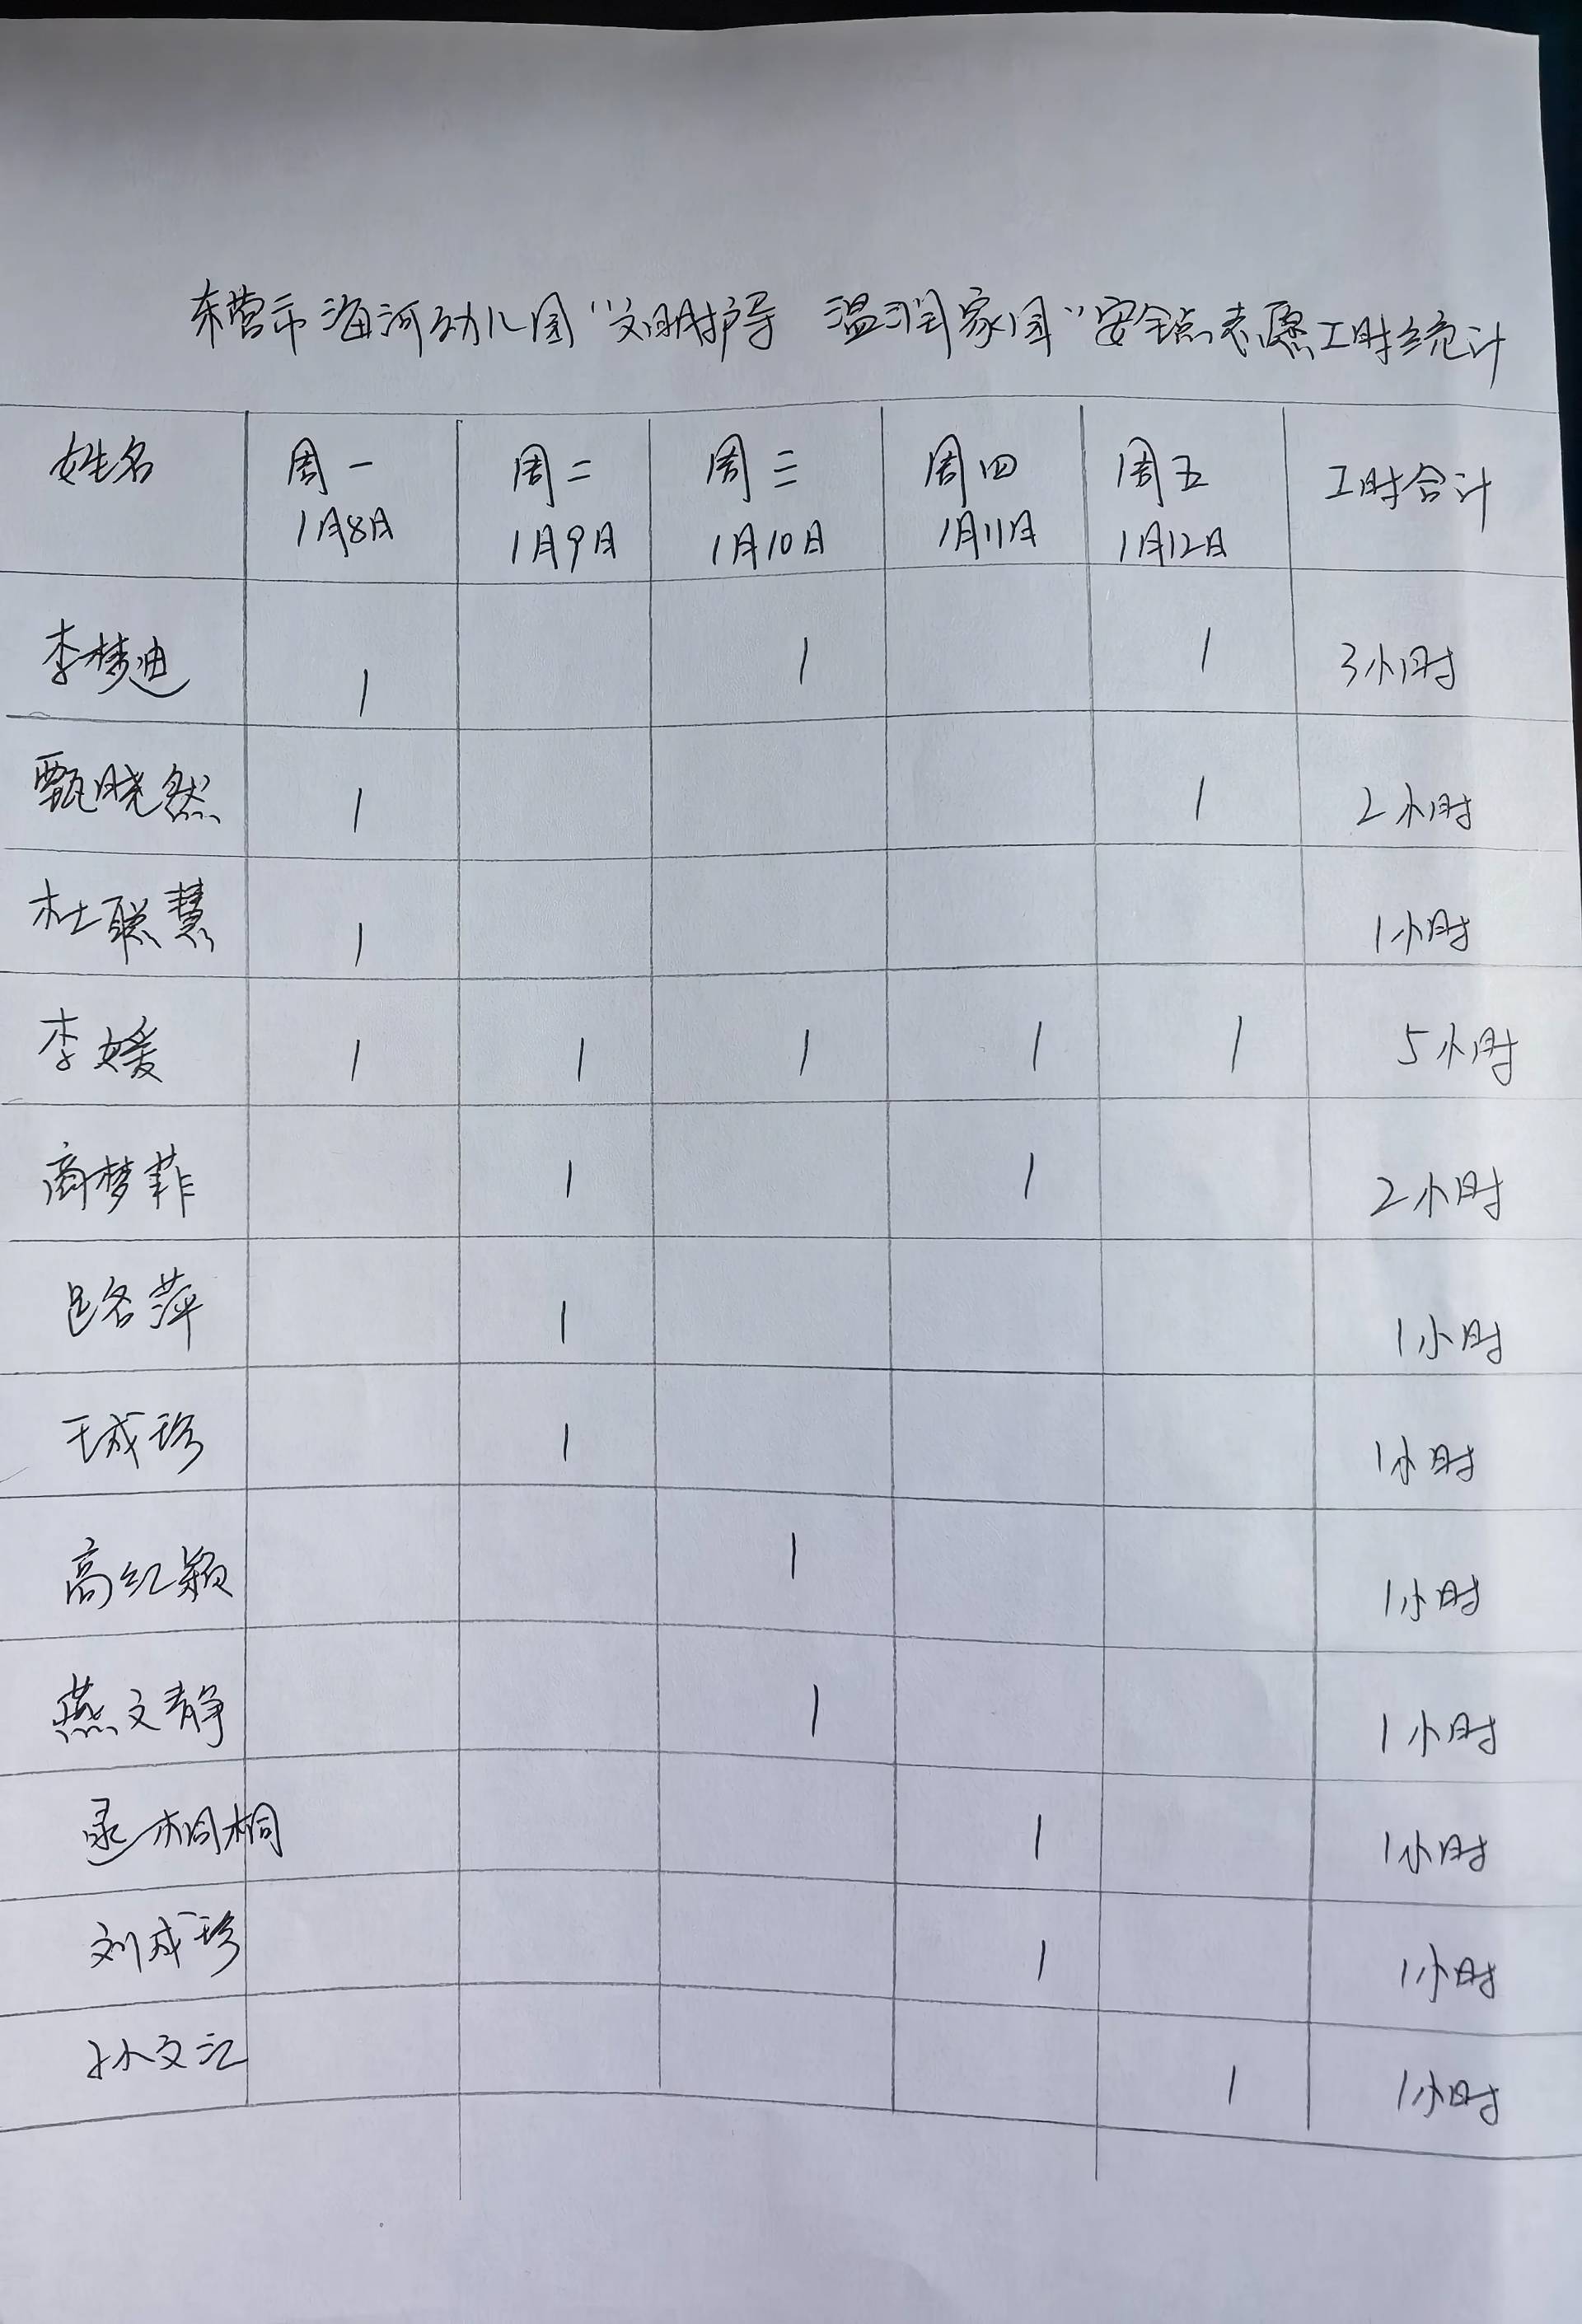 东营市海河幼儿园“文明护导 温润家园”安全点志愿工时统计
姓名 周一 1月8日 周二 1月9日 周三 1月10日 周四 1月11日 周五 1月12日 工时合计
李梦迪 1 1 1 3小时
甄晓然 1 1 2小时
杜聪慧 1 1小时
李媛 1 1 1 1 1 5小时
商梦菲 1 1 2小时
吕名萍 1 1小时
王成珍 1 1小时
高红颖 1 1小时
燕文静 1 1小时
逯桐桐 1 1小时
刘成珍 1 1小时
孙文江 1 1小时